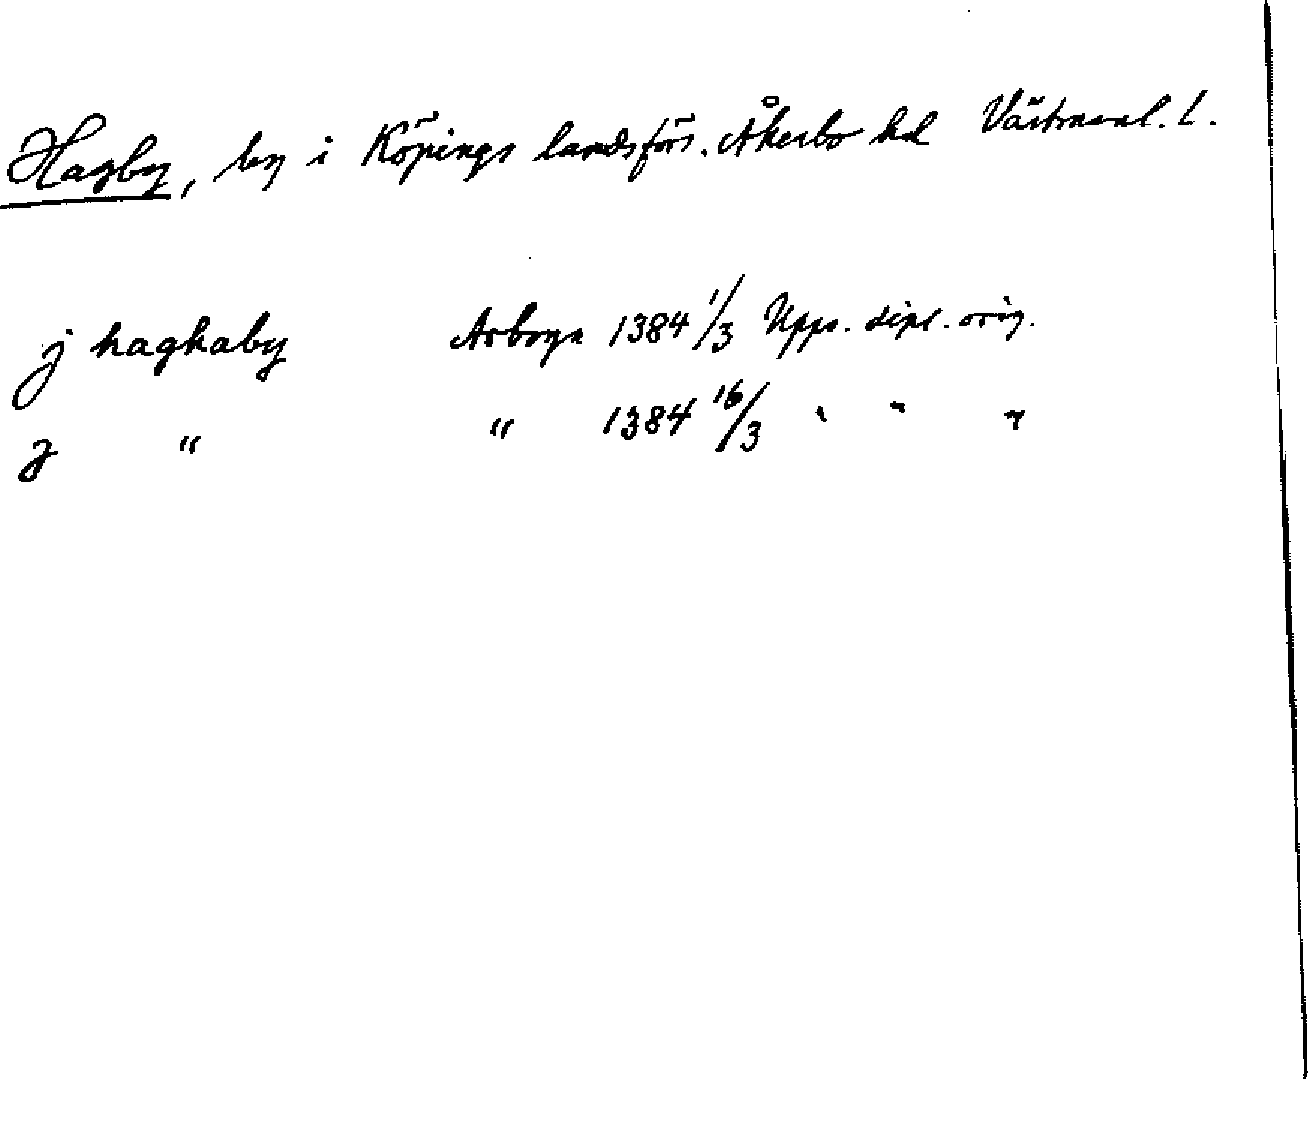 Hagby, by i Köpings landsförs. Åkerbo hd Västmanl. l.
j haghaby Arboga 1384 1/3 Upps. dipl. orig.
j " " 1384 16/3 " " "